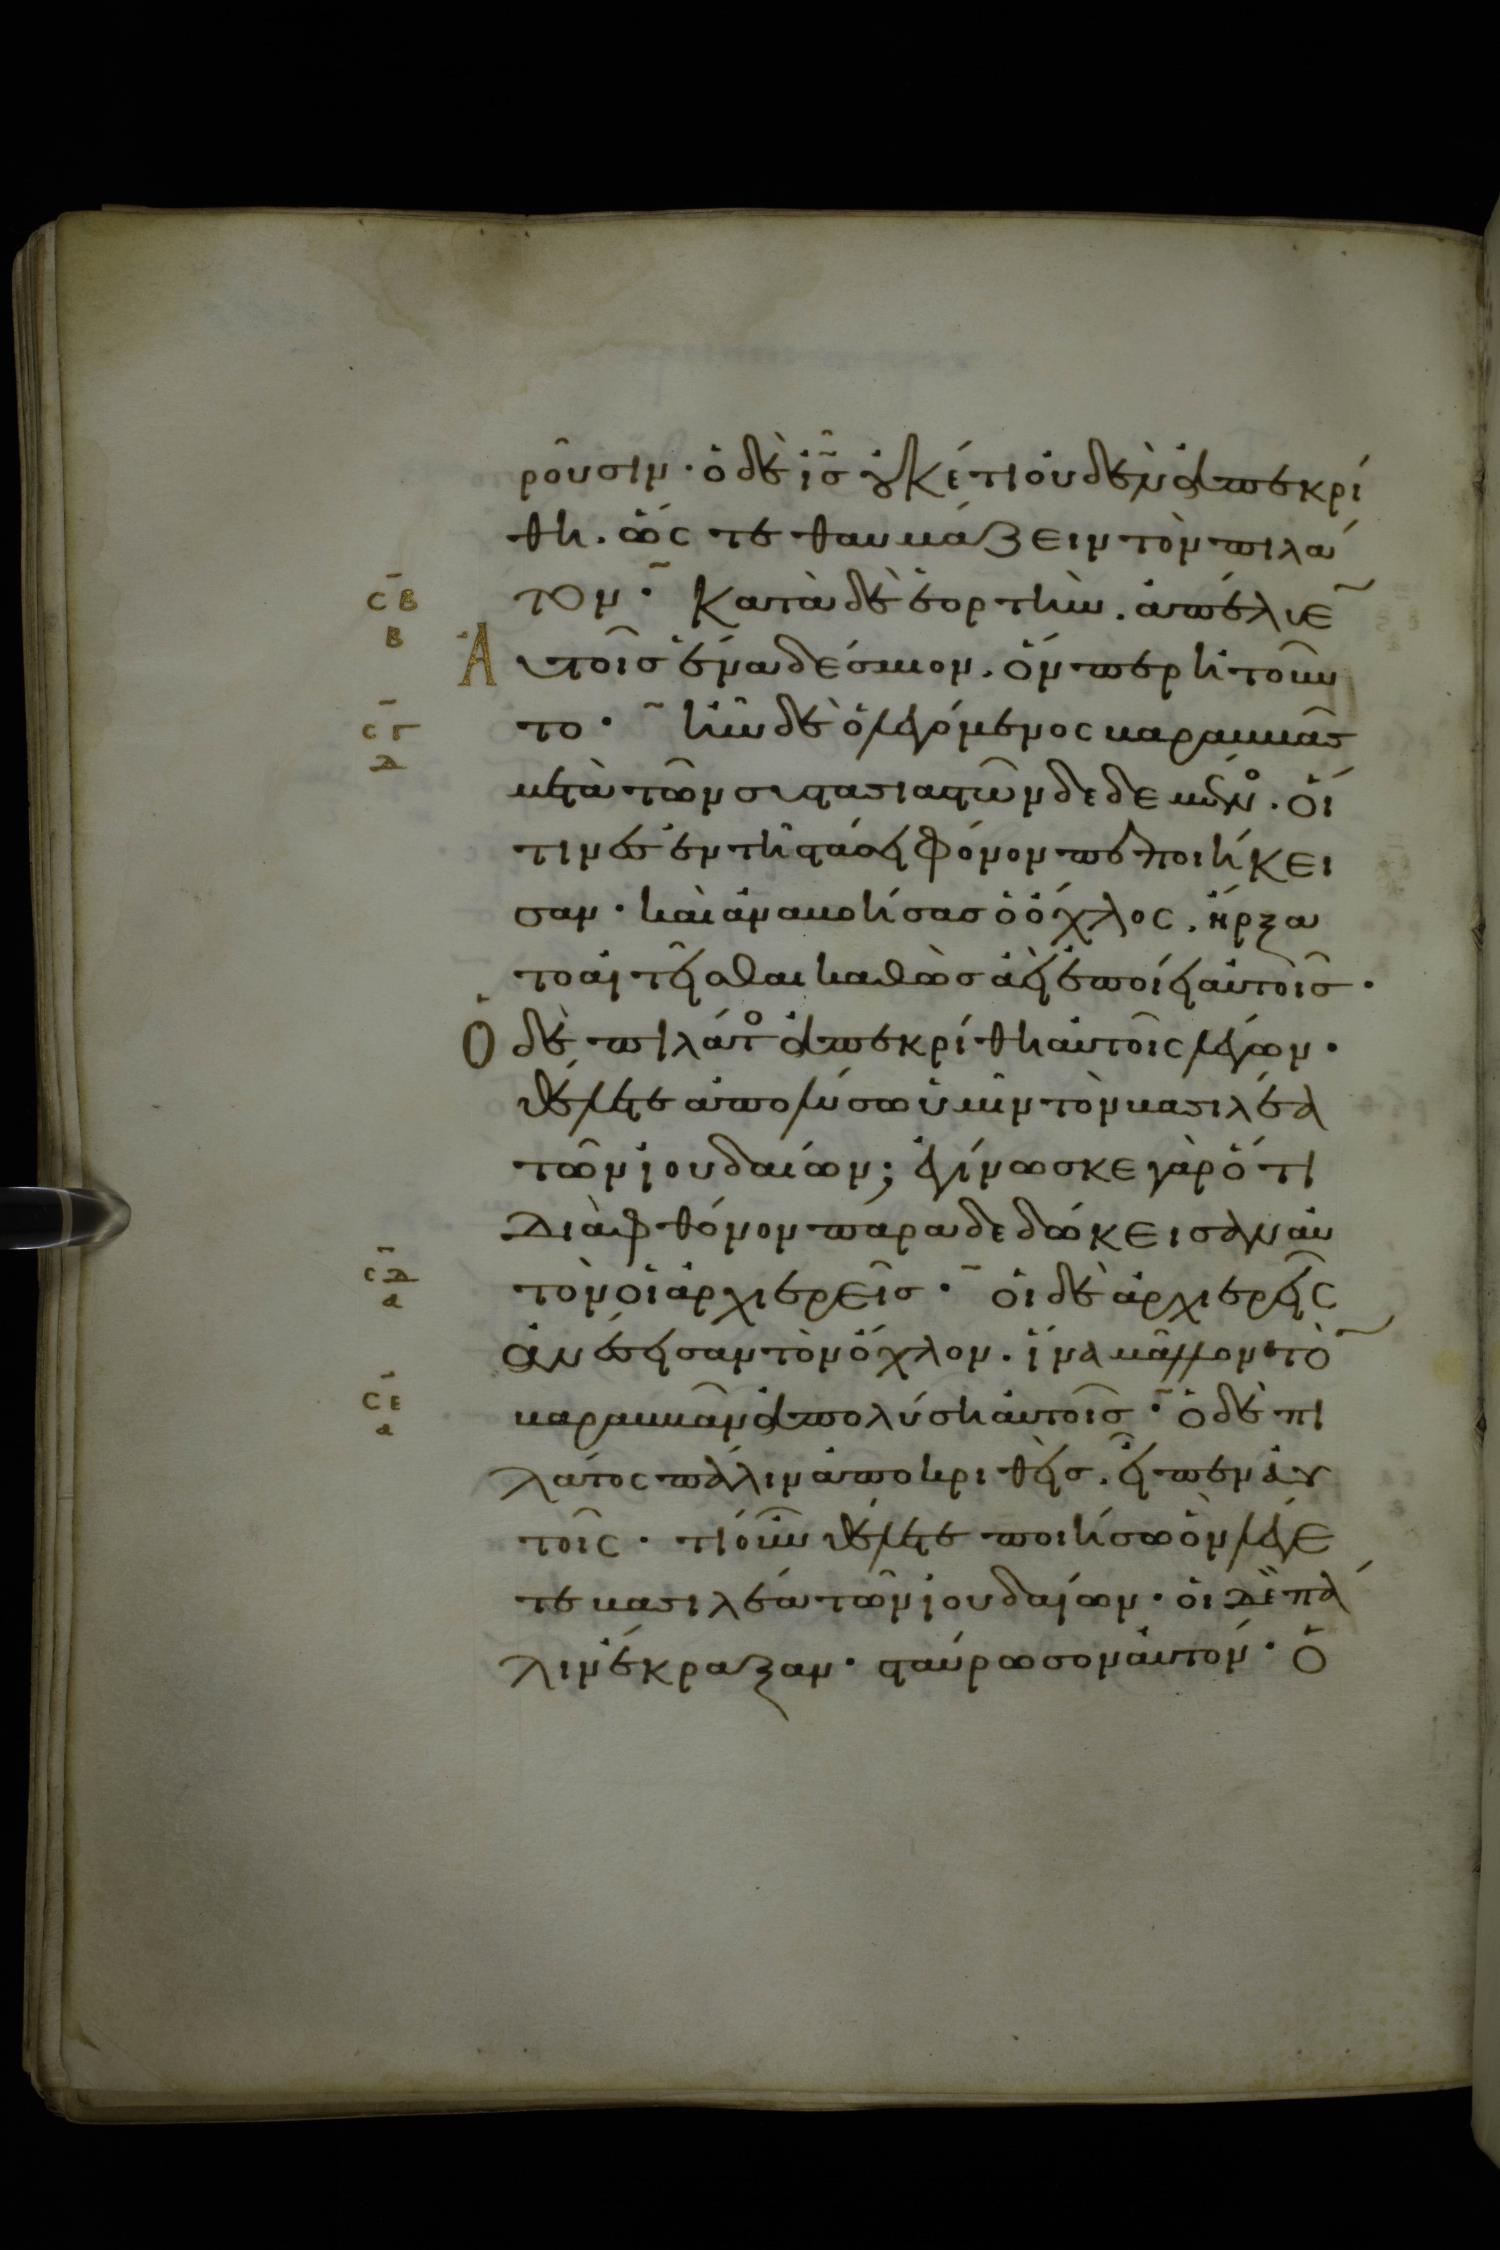 ροῦσιν · ὁ δὲ ἰ̅σ̅ οὐκέτι οὐδὲν ἀπεκρί
θη . ὥς τε θαυμάζειν τὸν πιλᾶ
σ̅β̅ τον · Κατὰ δὲ ἑορτὴν . ἀπέλυε
β
Α υτοῖσ ἕνα δέσμιον . ὅν περ ἠτοῦν
σ̅γ̅ το · ἦν δὲ ὁ λεγόμενος βαραββᾶσ
δ
μετὰ τῶν συστασιαστῶν δεδεμένος . οἵ
τινεσ ἐν τῆ στάσει φόνον πεποιήκει
σαν · καὶ ἀναβοήσασ ὁ ὄχλος . ἤρξα
το αἰτεῖσθαι καθὼσ ἀεὶ ἐποίει αὐτοῖσ ·
Ὁ δὲ πιλάτος ἀπεκρίθη αὐτοῖς λέγων ·
θέλετε ἀπολύσω ὑμῖν τὸν βασιλέα
τῶν ἰουδαίων ; ἐγίνωσκε γὰρ ὅτι
διὰ φθόνον παραδεδώκεισαν αὐ
σ̅δ̅ τὸν οἱ ἀρχιερεῖσ · οἱ δὲ ἀρχιερεῖς
α
ἀνέσεισαν τὸν ὄχλον . ἵνα μᾶλλον τὸν
σ̅ε̅ βαραββᾶν ἀπολύση αὐτοῖσ · ὁ δὲ πι
α
λάτος πάλιν ἀποκριθεὶσ . εἶπεν αὐ
τοῖς · τί οὖν θέλετε ποιήσω ὃν λέγε
τε βασιλέα τῶν ἰουδαίων · οἱ δὲ πά
λιν ἔκραξαν · σταύρωσον αὐτόν · Ὁ